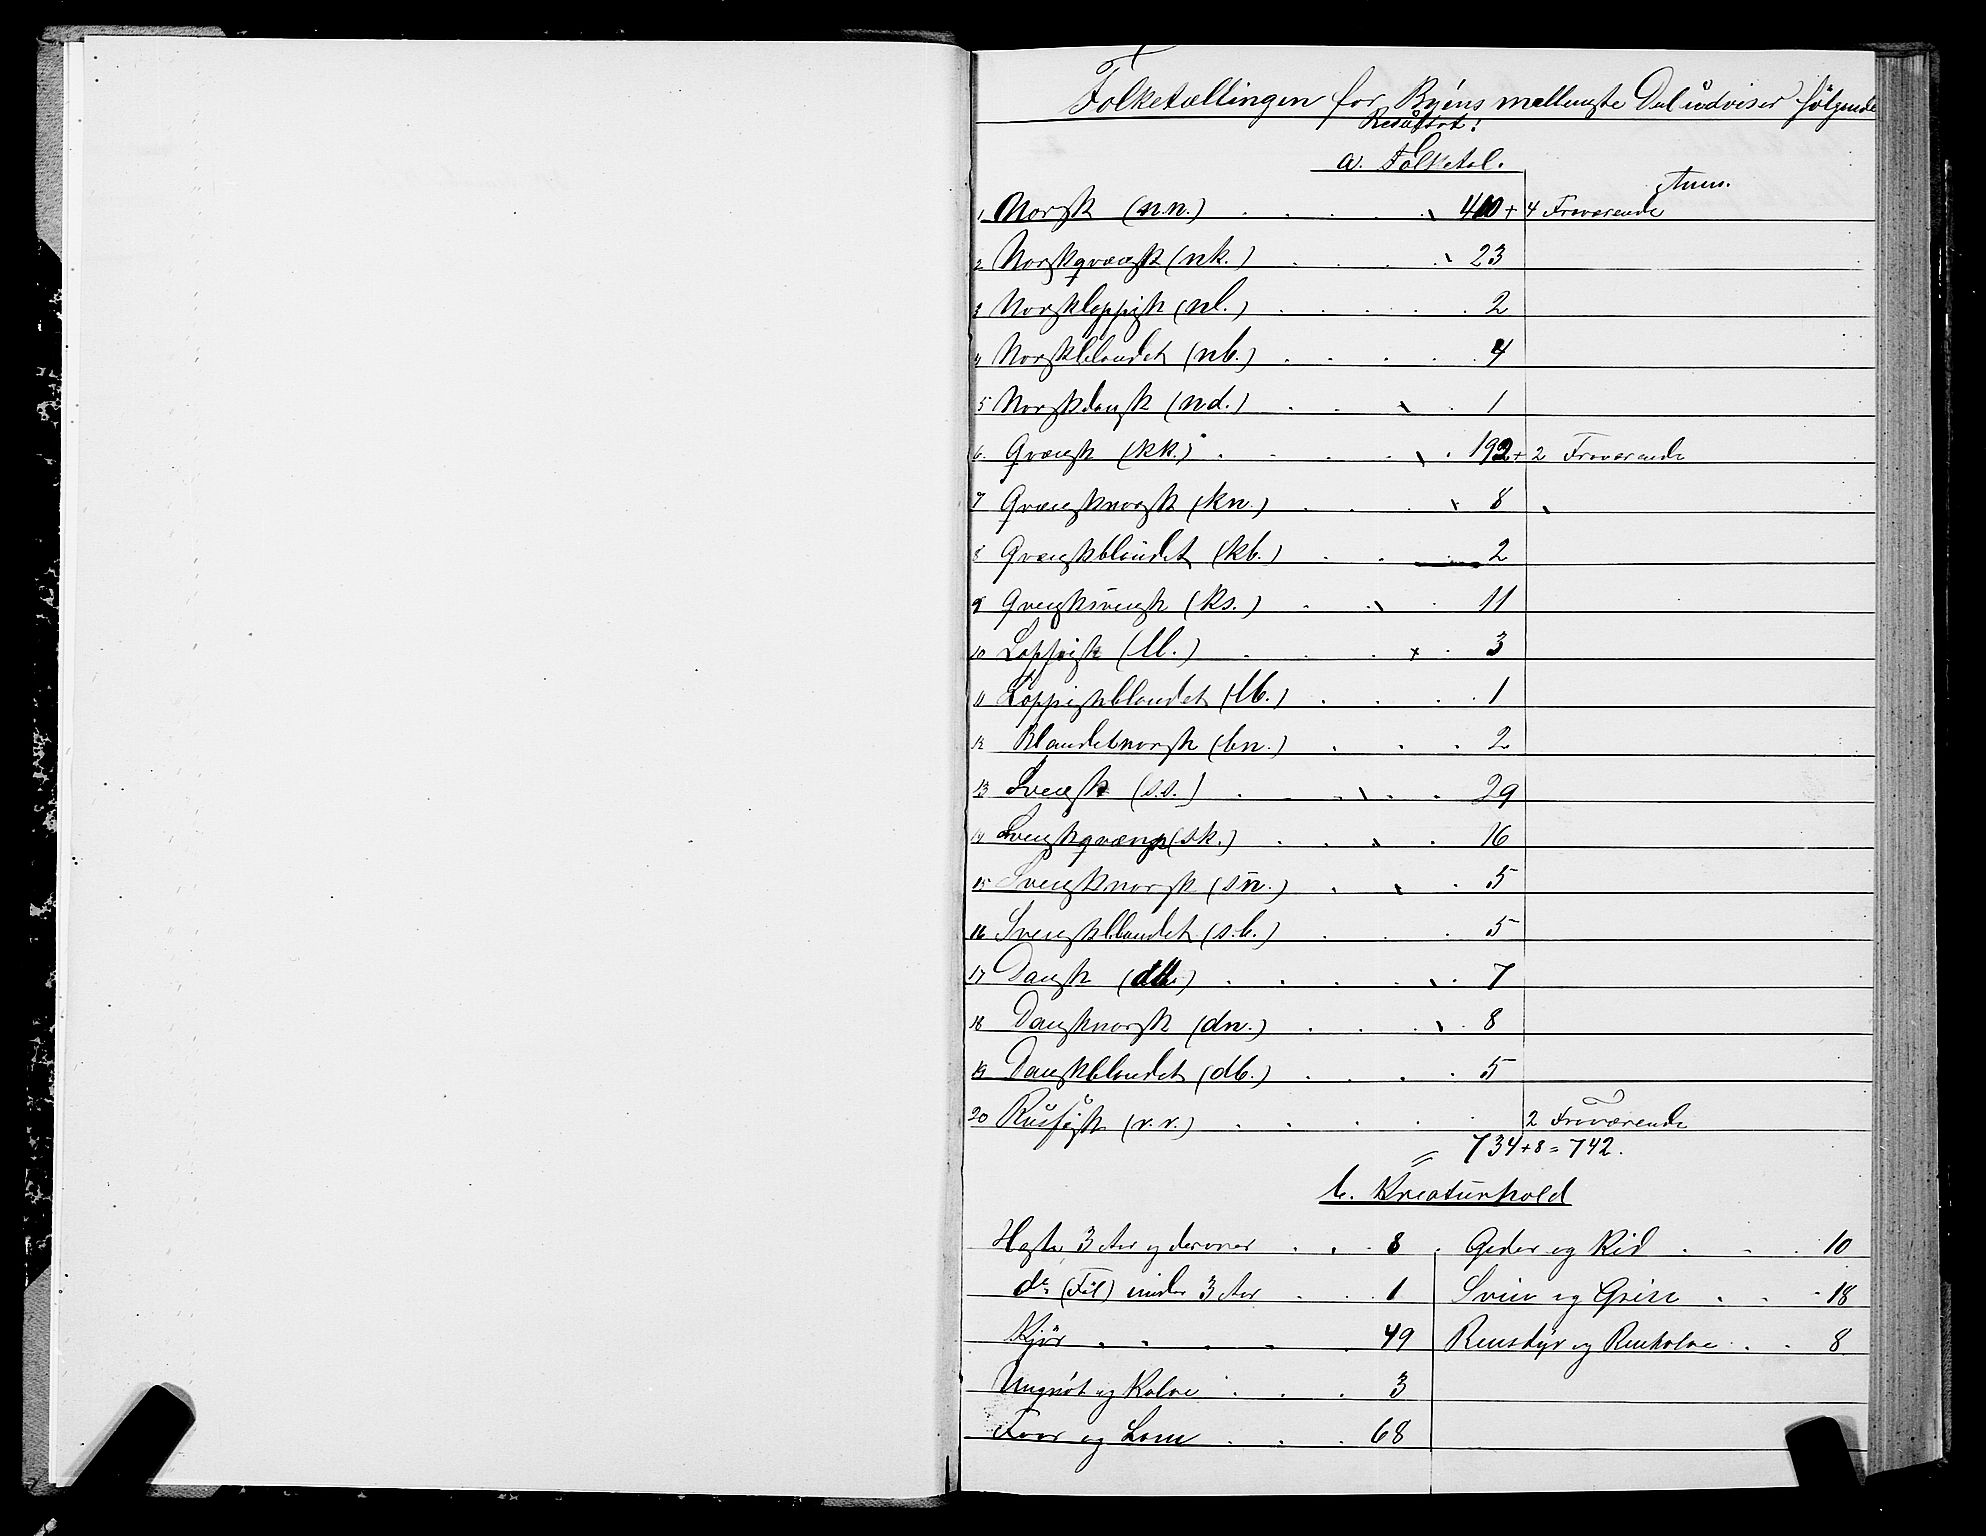 Folketællingen for Byens mellemste Del udviser følgende
Resultat:
a. Folketal.
Anm.
1 Norsk (n.n.) . . . . 410 + 4 Fraværende
2 Norskqvænsk (nk.) . . . . 23
3 Norsklappisk (nl.) . . . . . 2
4 Norskblandet (nb.) . . . . . 4
5 Norskdansk (nd.) . . . 1
6. Qvænsk (kk.) . . . . . 192 + 2 Fraværende
7 Qvænsknorsk (kn.) . . . 8
8 Qvænskblandet (kb.) . . 2
9 Qvensksvensk (ks.) . . . 11
10 Lappisk (ll.) . . . . 3
11 Lappiskblandet (lb.) . . . 1
12 Blandetnorsk (bn.) . . . 2
13 Svensk (s.s.) . . . . . 29
14 Svenskqvænsk (sk.) . . . 16
15 Svensknorsk (sn.) . . 5
16 Svenskblandet (s.b.) . . . 5
17 Dansk (dd.) . . . . . 7
18 Dansknorsk (dn.) . . . 8
19 Danskblandet (db.) . . . . 5
20 Russisk (r.r.) . . . . . 2 Fraværende
= 734 + 8 = 742.
b. Kreaturhold
Heste 3 Aar og derover . . . 8 . Geder og Kid . . . 10
do (Føl) under 3 Aar . . . 1 Sviin og Grise . . . 18
Kjør . . . . . 49 Rensdyr og Renkalve . . . 8
Ungnøt og Kalve . . . 3
Faar og Lam . . . 68